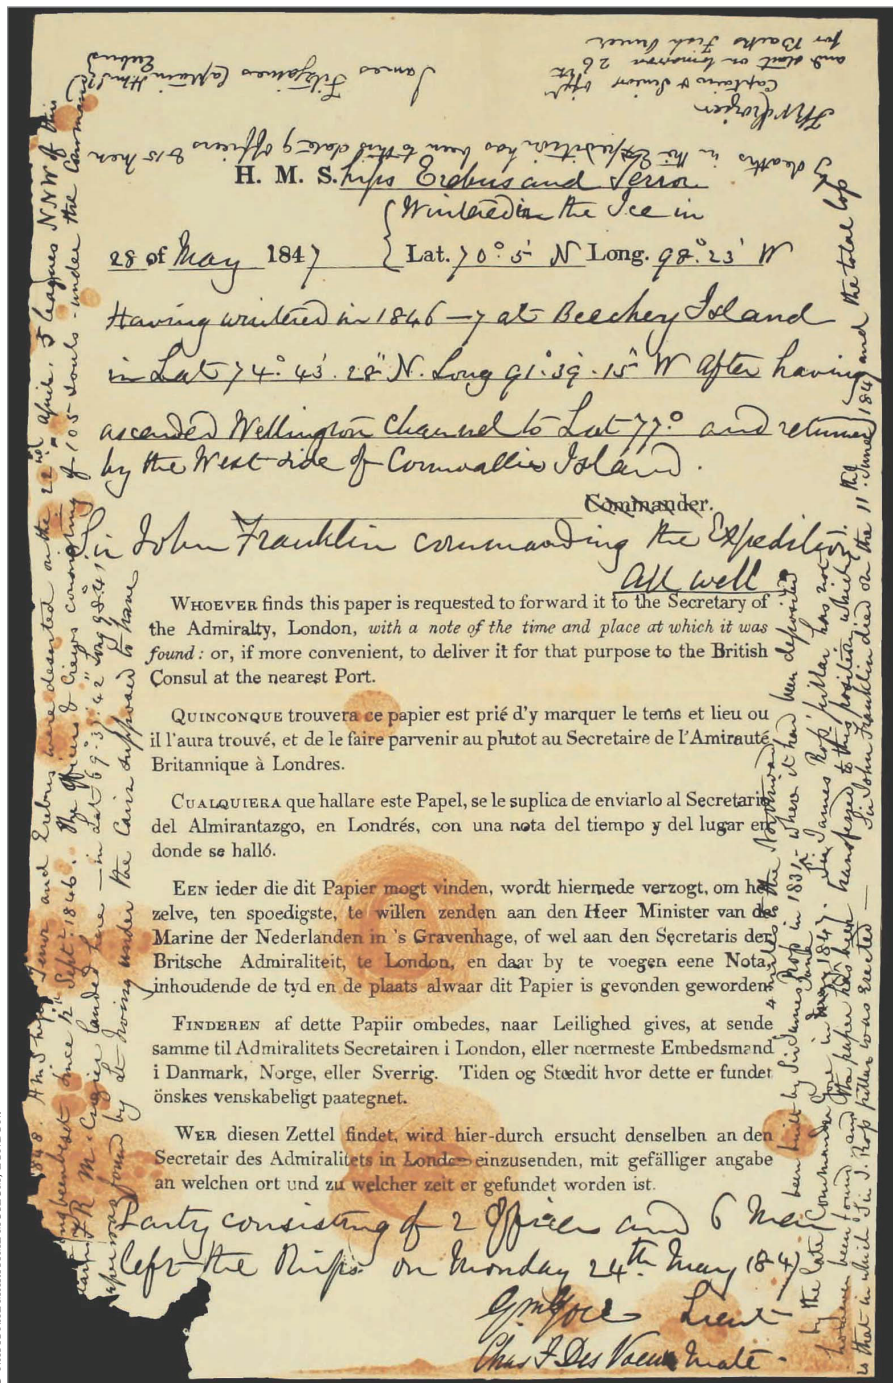 H. M. S.hips Erebus and Terror
Wintered in the Ice in
28 of May 1847 Lat. 70° 5' N Long. 98°. 23' W
Having wintered in 1846–7 at Beechey Island
in Lat 74°. 43'. 28" N. Long 91°. 39'. 15" W After having
ascended Wellington Channel to Lat 77° and returned
by the West side of Cornwallis Island.
Commander.
Sir John Franklin commanding the Expedition
All well
WHOEVER finds this paper is requested to forward it to the Secretary of
the Admiralty, London, with a note of the time and place at which it was
found: or, if more convenient, to deliver it for that purpose to the British
Consul at the nearest Port.
QUINCONQUE trouvera ce papier est prié d'y marquer le tems et lieu ou
il l'aura trouvé, et de le faire parvenir au plutot au Secretaire de l'Amirauté
Britannique à Londres.
CUALQUIERA que hallare este Papel, se le suplica de enviarlo al Secretario
del Almirantazgo, en Londrés, con una nota del tiempo y del lugar en
donde se halló.
EEN ieder die dit Papier mogt vinden, wordt hiermede verzogt, om het
zelve, ten spoedigste, te willen zenden aan den Heer Minister van de
Marine der Nederlanden in 's Gravenhage, of wel aan den Secretaris den
Britsche Admiraliteit, te London, en daar by te voegen eene Nota,
inhoudende de tyd en de plaats alwaar dit Papier is gevonden geworden.
FINDEREN af dette Papiir ombedes, naar Leilighed gives, at sende
samme til Admiralitets Secretairen i London, eller nœrmeste Embedsmand
i Danmark, Norge, eller Sverrig. Tiden og Stœdit hvor dette er fundet
önskes venskabeligt paategnet.
WER diesen Zettel findet, wird hier-durch ersucht denselben an den
Secretair des Admiralitets in London einzusenden, mit gefälliger angabe
an welchen ort und zu welcher zeit er gefundet worden ist.
Party consisting of 2 Officers and 6 Men
left the Ships on Monday 24th May 1847
Gm Gore Lieut
Chas F Des Voeux Mate.
1848. H.M.Ships Terror and Erebus were deserted on the 22nd April. 5 leagues NNW of this
been beset since 12th Septr 1846. The Officers & Crews consisting of 105 souls - under the command
Captain F.R.M. Crozier landed here - in Lat 69°. 37'. 42" Long 98°. 41'
paper was found by Lt Irving under the Cairn supposed to have
been built by Sir James Ross in 1831 - where it had been deposited
4 miles to the Northward
by the late Commander Gore in May June 1847. Sir James Ross' pillar has not
however been found and the paper has been transferred to this position which
is that in which Sir J. Ross pillar was erected — Sir John Franklin died on the 11th June 1847 and the total loss
by deaths in the Expedition has been to this date 9 officers & 15 men
James Fitzjames Captain HMS Erebus
F R M Crozier
Captain & Senior Offr
and start on tomorrow 26th
for Backs Fish River